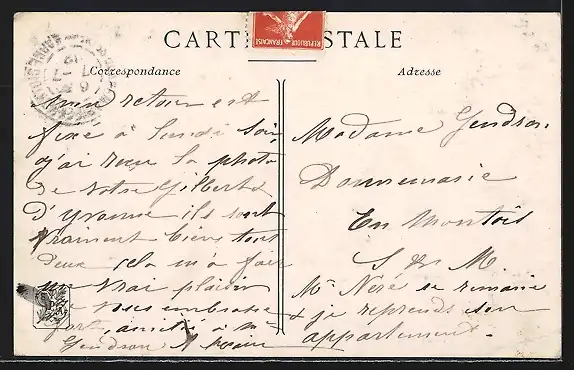 CARTE POSTALE
REPUBLIQUE FRANÇAISE
Correspondance
Adresse
mon retour est
fixé à Lundi soir
j'ai reçu la photo
de votre Gilberte
d'Yvonne ils sont
vraiment bien tout
deux cela m'a fait
un vrai plaisir
je vous embrasse
fort, amitié à Mr
Gendron
Madame Gendron
Donnemarie
En Montois
S & M.
Mr Neré se remarie
& je reprends son
appartement.